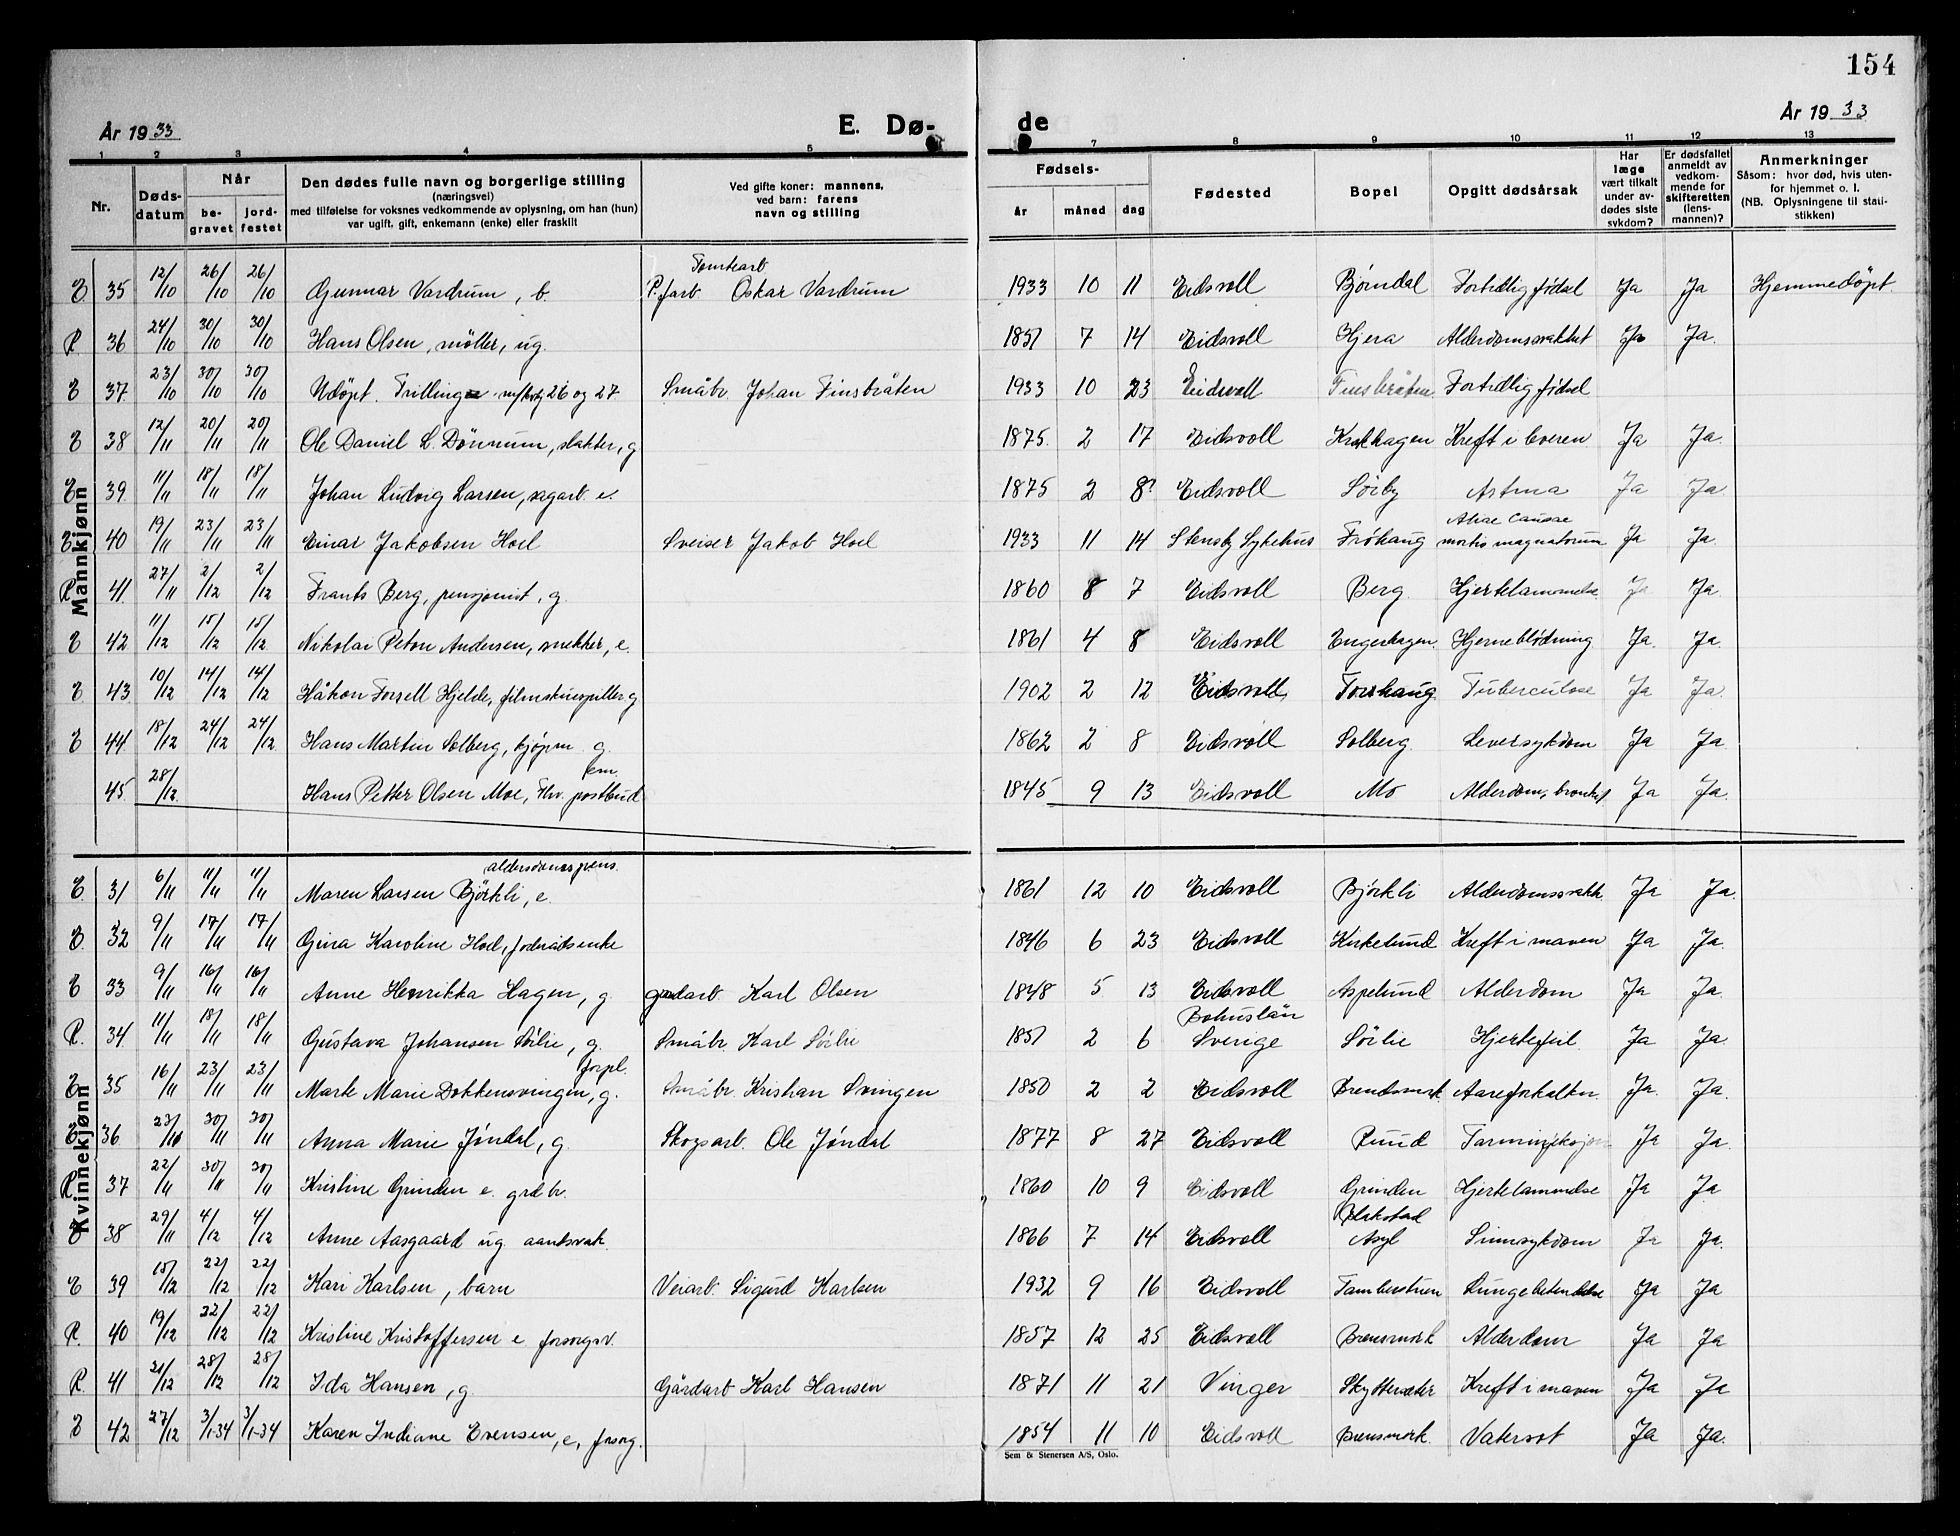 154
År 1933 E. Dø- de År 1933
1 2 3 4 5 7 8 9 10 11 12 13
Nr. Dødsdatum Når begravet jordfestet
Den dødes fulle navn og borgerlige stilling
(næringsvei)
med tilføielse for voksnes vedkommende av oplysning, om han (hun)
var ugift, gift, enkemann (enke) eller fraskilt
Ved gifte koner: mannens,
ved barn: farens
navn og stilling
Fødsels- år måned dag
Fødested
Bopel
Opgitt dødsårsak
Har læge vært tilkalt under avdødes siste sykdom?
Er dødsfallet anmeldt av vedkommende for skifteretten (lensmannen)?
Anmerkninger
Såsom: hvor død, hvis utenfor hjemmet o. l.
(NB. Oplysningene til statistikken)
Mannkjønn
E 35 12/10 26/10 26/10 Gunnar Vardrum, b. Tomtearb Oskar Vardrum 1933 10 11 Eidsvoll Bjørndal Fortidlig fødsel Ja Ja Hjemmedøpt.
R. 36 24/10 30/10 30/10 Hans Olsen, møller, ug. 1851 7 14 Eidsvoll Hjera Alderdomssvakhet Ja Ja.
E 37 23/10 30/10 30/10 Udøpt. Trilling 26 og 27 Småbr. Johan Finsbråten 1933 10 23 Eidsvoll Finsbråten Fortidlig fødsel
E 38 12/11 20/11 20/11 Ole Daniel L. Dönnum, slakter, g 1875. 2 17 Eidsvoll Krokhagen Kreft i leveren Ja Ja.
E 39 11/11 18/11 18/11 Johan Ludvig Larsen, sagarb. e. 1875 2 8? Eidsvoll Sörby Astma Ja Ja
E 40 19/11 23/11 23/11 Einar Jakobsen Hoel Sveiser Jakob Hoel 1933 11 14 Stensby Sykehus Fröhaug Aliae causae mortis magnatorum Ja Ja.
R 41. 27/11 2/12 2/12 Frants Berg, pensjonist, g. 1860 8 7 Eidsvoll Berg. Hjertelammelse Ja Ja.
E 42 11/12 15/12 15/12 Nikolai Peton Andersen, snekker, e. 1861 4 8 Eidsvoll Engerhagen. Hjerneblödning Ja. Ja.
E 43 10/12 14/12 14/12 Håkon Forsell Hjelde, filmskuespiller g 1902 2 12 Eidsvoll, Torshaug Tuberculose Ja Ja.
E 44 18/12 24/12 24/12 Hans Martin Solberg, kjøpm. g. 1862 2 8 Eidsvoll Solberg. Leversykdom Ja Ja.
45. 28/12 Hans Petter Olsen Moe, Fhv. postbud em. 1845 9 13 Eidsvoll Mo Alderdom, bronkit Ja Ja.
Kvinnekjønn
E. 31 6/11 11/11 11/11 Maren Larsen Björkli, e. alderdomspens. 1861 12 10 Eidsvoll Björkli Alderdomssvakh. Ja Ja.
E. 32 9/11 17/11 17/11 Gina Karoline Hoel, foderådsenke 1846 6 23 Eidsvoll Kirkelund Kreft i maven Ja Ja.
E 33 9/11 16/11 16/11 Anne Henrikka Hagen, g. gårdarb. Karl Olsen 1848 5 13 Eidsvoll Aspelund Alderdom Ja Ja.
R. 34 11/11 18/11 18/11 Gustava Johansen Sörlie, g. Småbr. Karl Sörlie 1851 2 6 Bohuslän Sverige Sörlie Hjertefeil. Ja Ja.
E 35 16/11 23/11 23/11 Marte Marie Dokkensvingen, g. forpl. Småbr. Kristian Svingen 1850 2 2 Eidsvoll Brensmork Aareforkalkn. Ja. Ja.
E 36 23/11 30/11 30/11 Anna Marie Jøndal, g. Skogsarb. Ole Jøndal 1877 8 27 Eidsvoll Ruud Tarminfeksjon Ja Ja.
R 37 22/11 30/11 30/11 Kristine Grinden e. grdbr. 1860 10 9 Eidsvoll Grinden Hjertelammelse Ja Ja
E 38 29/11 4/12 4/12 Anne Aasgaard ug. aandsvak. 1866 7 14 Eidsvoll Plakstad Asyl Sinnsykdom Ja Ja.
E 39 15/12 22/12 22/12 Kari Karlsen, barn Veiarb. Sigurd Karlsen 1932 9 16 Eidsvoll Tamburstuen Lungebetendelse Ja Ja
R. 40 19/12 22/12 22/12 Kristine Kristoffersen e. forsorgsv. 1857 12 25 Eidsvoll Brensmork Alderdom Ja Ja
R. 41 21/12 28/12 28/12 Ida Hansen, g. Gårdarb Karl Hansen 1871 11 21 Vinger Skyttersæter Kreft i maven Ja Ja
E 42 27/12 3/1-34 3/1-34 Karen Indiane Evensen, e, forsorg. 1854 11 10 Eidsvoll Brensmork. Vatersot Ja Ja.
Sem & Stenersen A/S, Oslo.